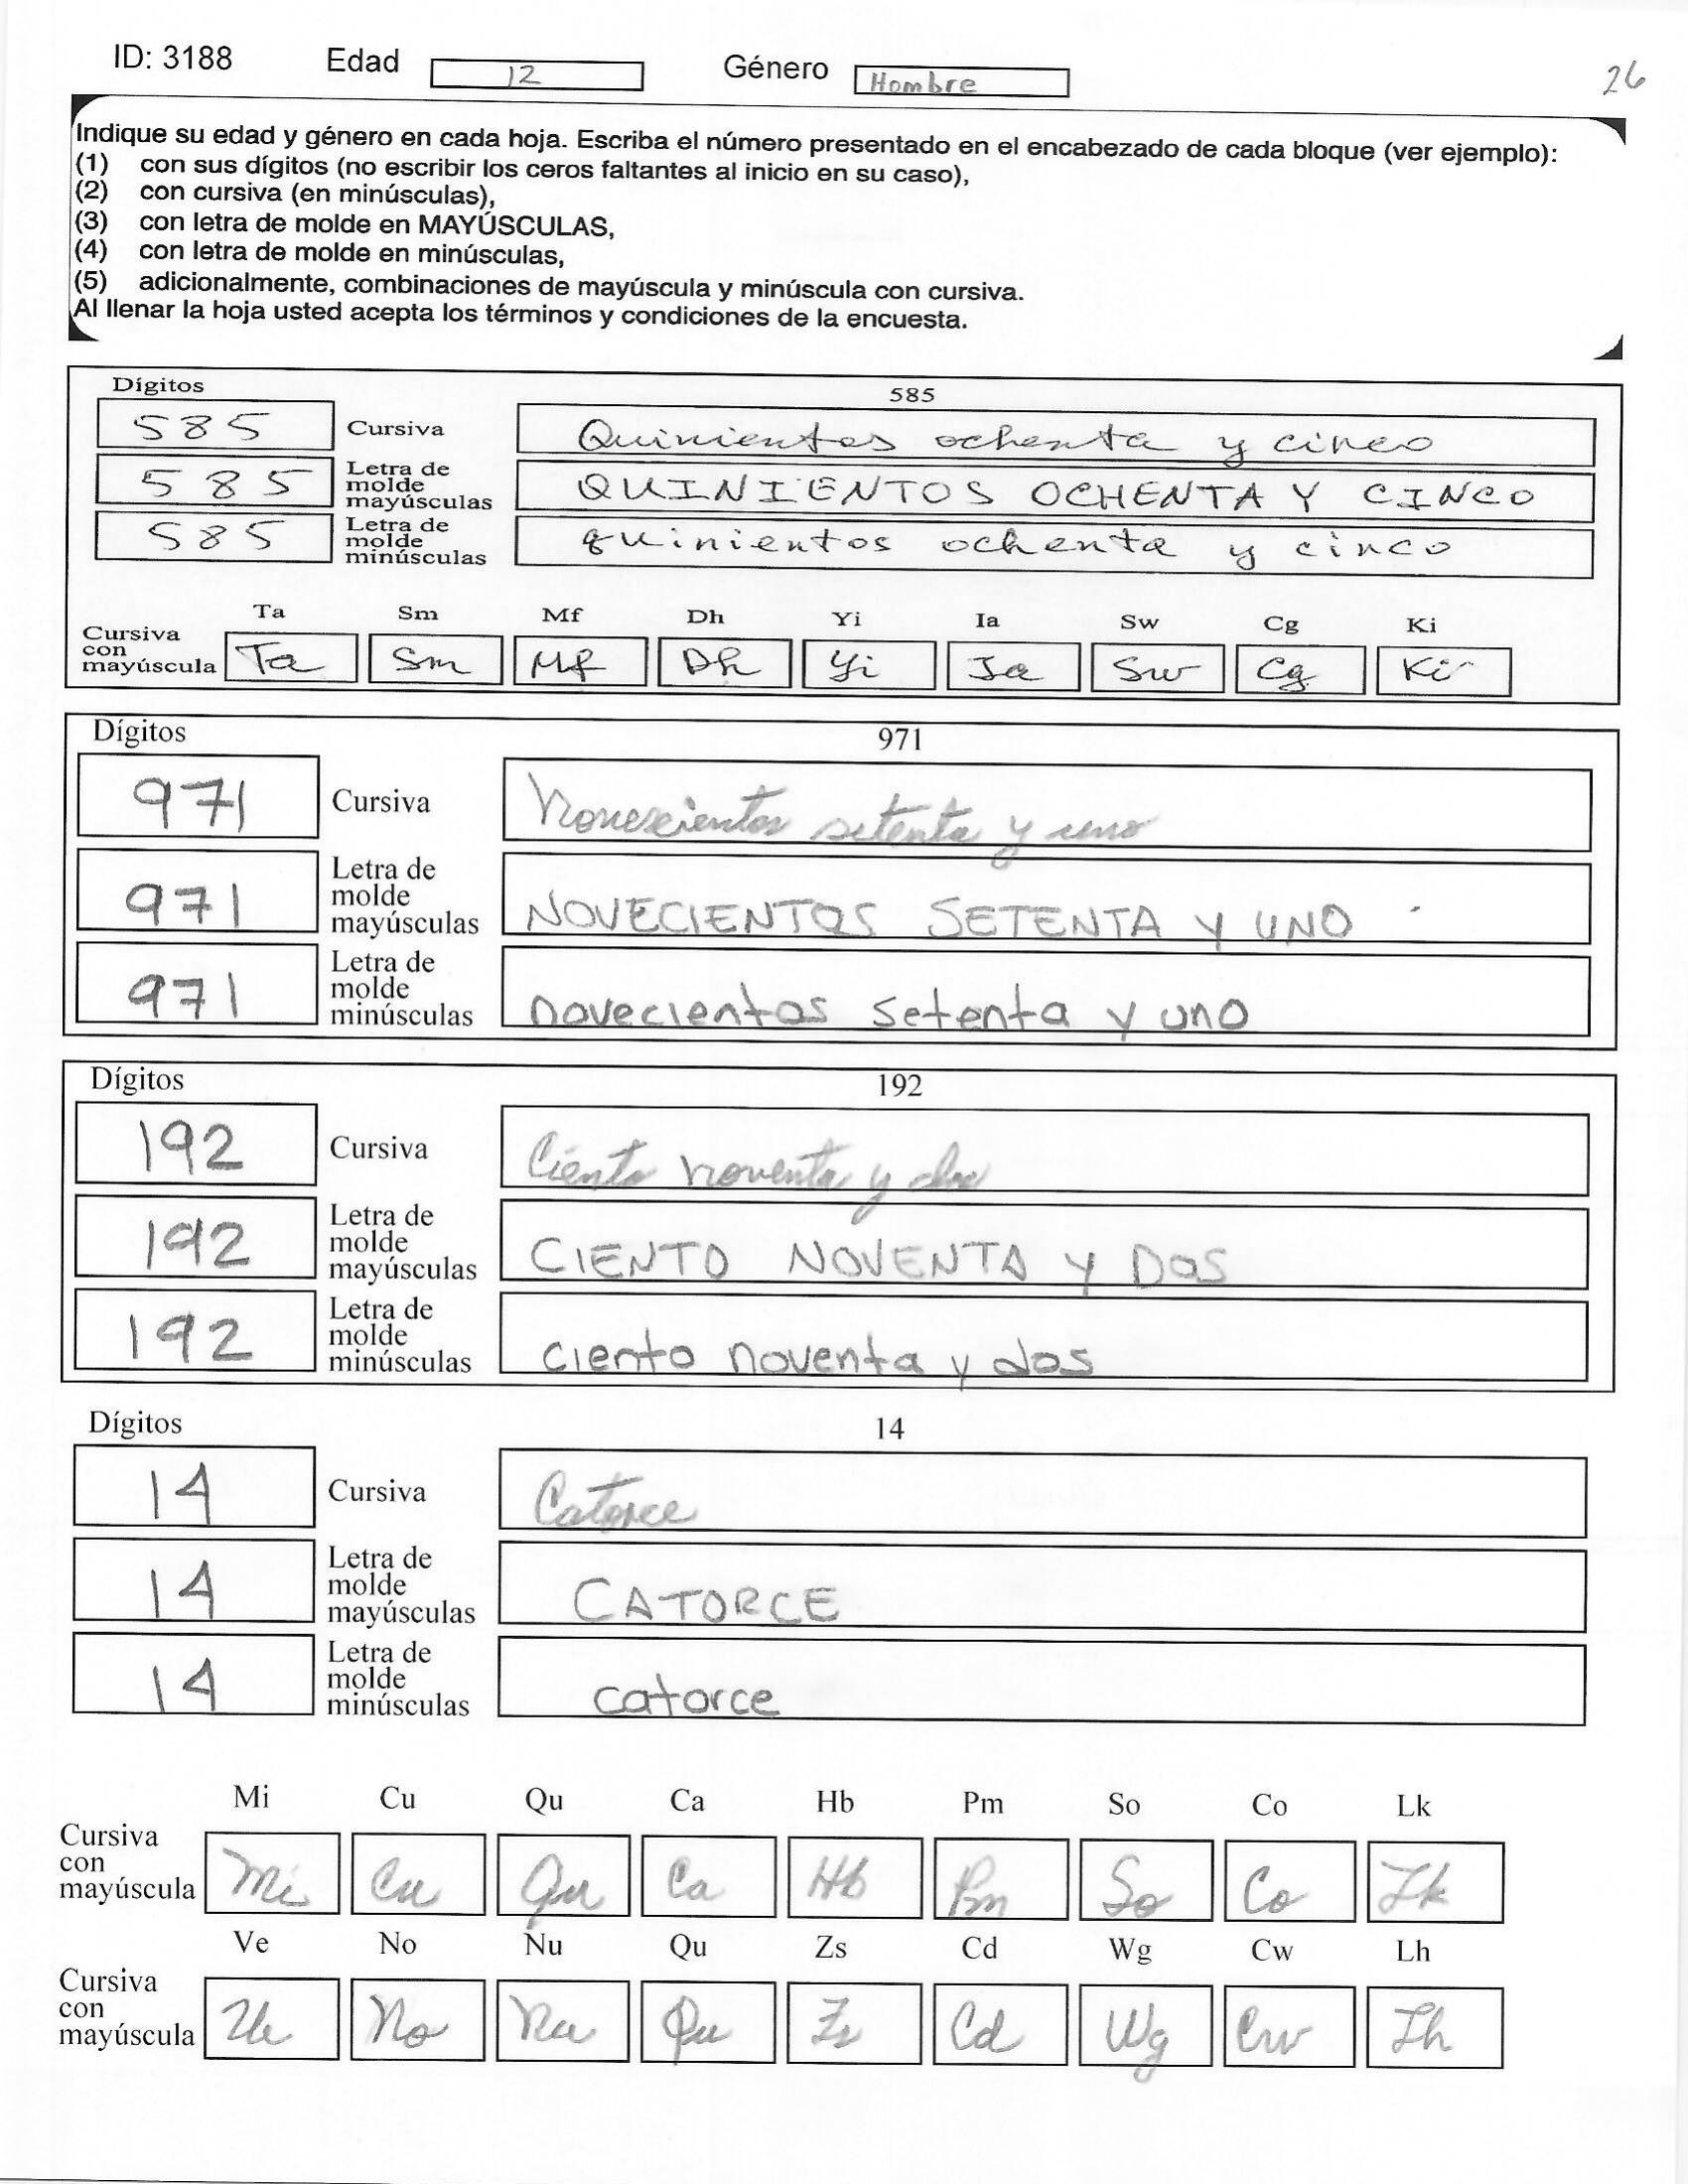 ID: 3188 Edad 12 Género Hombre 26
Indique su edad y género en cada hoja. Escriba el número presentado en el encabezado de cada bloque (ver ejemplo):
(1) con sus dígitos (no escribir los ceros faltantes al inicio en su caso),
(2) con cursiva (en minúsculas),
(3) con letra de molde en MAYÚSCULAS,
(4) con letra de molde en minúsculas,
(5) adicionalmente, combinaciones de mayúscula y minúscula con cursiva.
Al llenar la hoja usted acepta los términos y condiciones de la encuesta.
Dígitos 585
585 Cursiva Quinientos ochenta y cinco
585 Letra de molde mayúsculas QUINIENTOS OCHENTA Y CINCO
585 Letra de molde minúsculas quinientos ochenta y cinco
Ta Sm Mf Dh Yi Ia Sw Cg Ki
Cursiva con mayúscula Ta Sm Mf Dh Yi Ia Sw Cg Ki
Dígitos 971
971 Cursiva Novecientos setenta y uno
971 Letra de molde mayúsculas NOVECIENTOS SETENTA Y UNO
971 Letra de molde minúsculas novecientos setenta y uno
Dígitos 192
192 Cursiva Ciento noventa y dos
192 Letra de molde mayúsculas CIENTO NOVENTA Y DOS
192 Letra de molde minúsculas ciento noventa y dos
Dígitos 14
14 Cursiva Catorce
14 Letra de molde mayúsculas CATORCE
14 Letra de molde minúsculas catorce
Mi Cu Qu Ca Hb Pm So Co Lk
Cursiva con mayúscula Mi Cu Qu Ca Hb Pm So Co Lk
Ve No Nu Qu Zs Cd Wg Cw Lh
Cursiva con mayúscula Ve No Nu Qu Zs Cd Wg Cw Lh